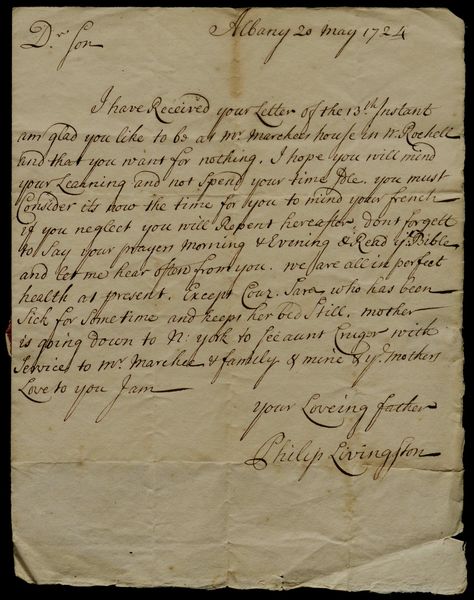 Albany 20 may 1724
Dr. Son
I have Received your Letter of the 13th Instant
am glad you like to be at mr. Marchees house in N. Rochell
and that you want for nothing. I hope you will mind
your Learning and not Spend your time Idle. you must
Consider its now the time for you to mind your french
if you neglect you will Repent hereafter. dont forgett
to Say your prayers morning & Evening & Read ye. Bible
and let me hear often from you. we are all in perfect
health at present. Except Couz. Sara who has been
Sick for Some time and keeps her bed Still. mother
is going down to N: york to See aunt Cruger with
Service to mr. Marchee & family & mine & ye. mothers
Love to you I am
your Loveing father
Philip Livingston